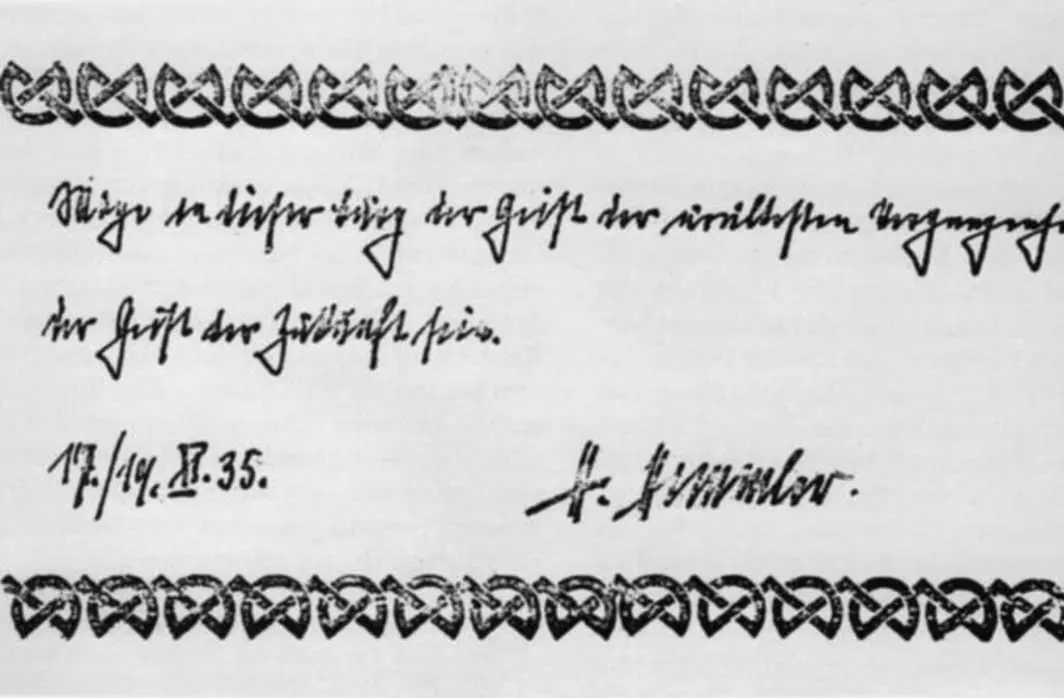 Möge in dieser Burg der Geist der urältesten Vergangenh
der Geist der Zukunft sein.
17./19. XI. 35. H. Himmler.